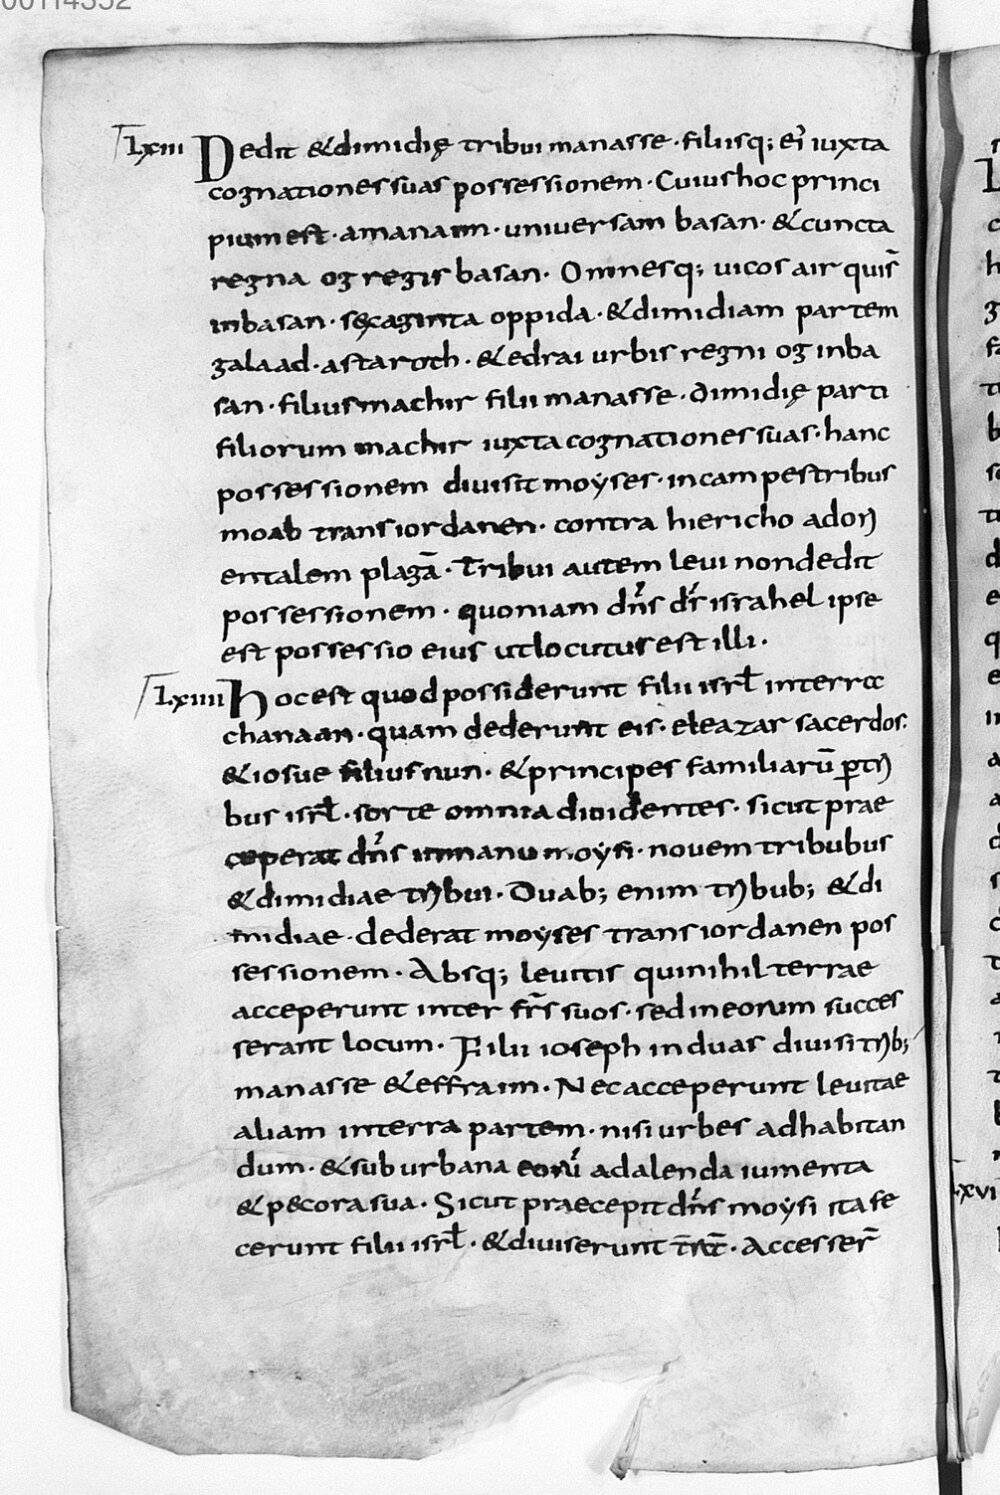 00114352
Lxiii Dedit &dimidię tribui manasse · filiisq; ei' iuxta
cognationes suas possessionem · Cuius hoc princi
pium est · amanaim · uniuersam basan · &cuncta
regna og regis basan · Omnesq; uicos air qui s̄
inbasan · sexaginta oppida · &dimidiam partem
galaad · astaroth · &edrai urbis regni og inba
san · filiis machir filii manasse · dimidię parti
filiorum machir iuxta cognationes suas · hanc
possessionem diuisit moyses · in campestribus
moab trans iordanen · contra hiericho adori
entalem plagā · Tribui autem leui non dedit
possessionem · quoniam dn̄s ds̄ israhel ipse
est possessio eius ut locutus est illi ·
Lxiiii Hoc est quod possiderunt filii isrl̄ interra
chanaan · quam dederunt eis · eleazar sacerdos ·
&iosue filius nun · &principes familiarū ꝑtri
bus isrl̄ · sorte omnia diuidentes · sicut prae
ceperat dn̄s inmanu moysi · nouem tribubus
&dimidiae tribui · Duab; enim tribub; &di
midiae · dederat moyses trans iordanen pos
sessionem · Absq; leuitis qui nihil terrae
acceperunt inter fr̄s suos · sed in eorum succes
serant locum · Filii ioseph induas diuisi trib;
manasse &effraim · Nec acceperunt leuitae
aliam interra partem · nisi urbes adhabitan
dum · &suburbana eorū adalenda iumenta
&pecora sua · Sicut praecepit dn̄s moysi ita fe
cerunt filii isrl̄ · &diuiserunt · Accesser̄
xvi